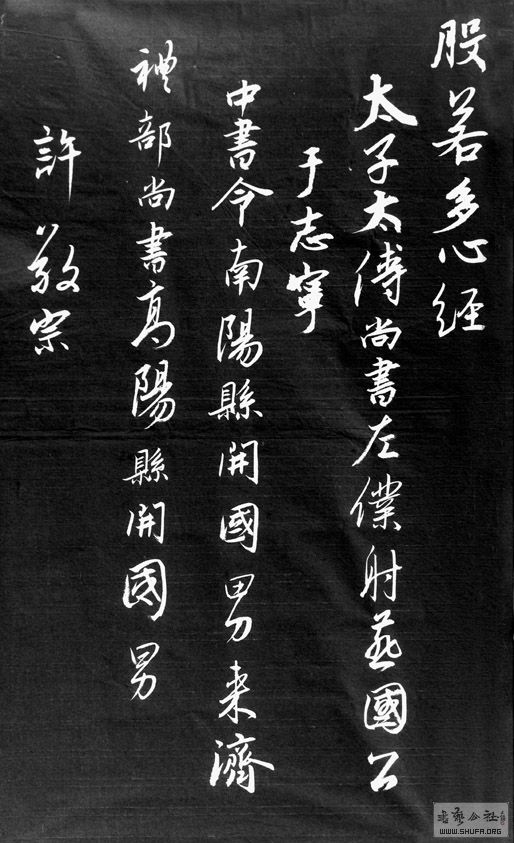 般若多心經
太子太傅尚書左僕射燕國公
于志寧
中書令南陽縣開國男来濟
禮部尚書高陽縣開國男
許敬宗
书艺公社
WWW.SHUFA.ORG